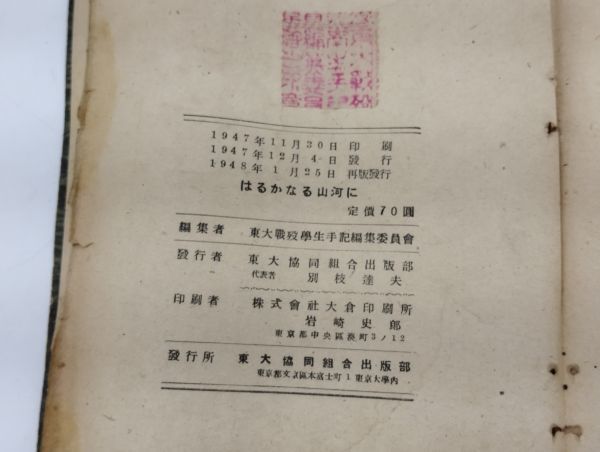 1947年11月30日 印刷
1947年12月4日 發行
1948年1月25日 再版發行
はるかなる山河に
定價70圓
編集者 東大戰歿學生手記編集委員會
發行者 東大協同組合出版部
代表者 別枝達夫
印刷者 株式會社大倉印刷所
岩崎史郎
東京都中央區湊町3ノ12
發行所 東大協同組合出版部
東京都文京區本富士町1 東京大學內